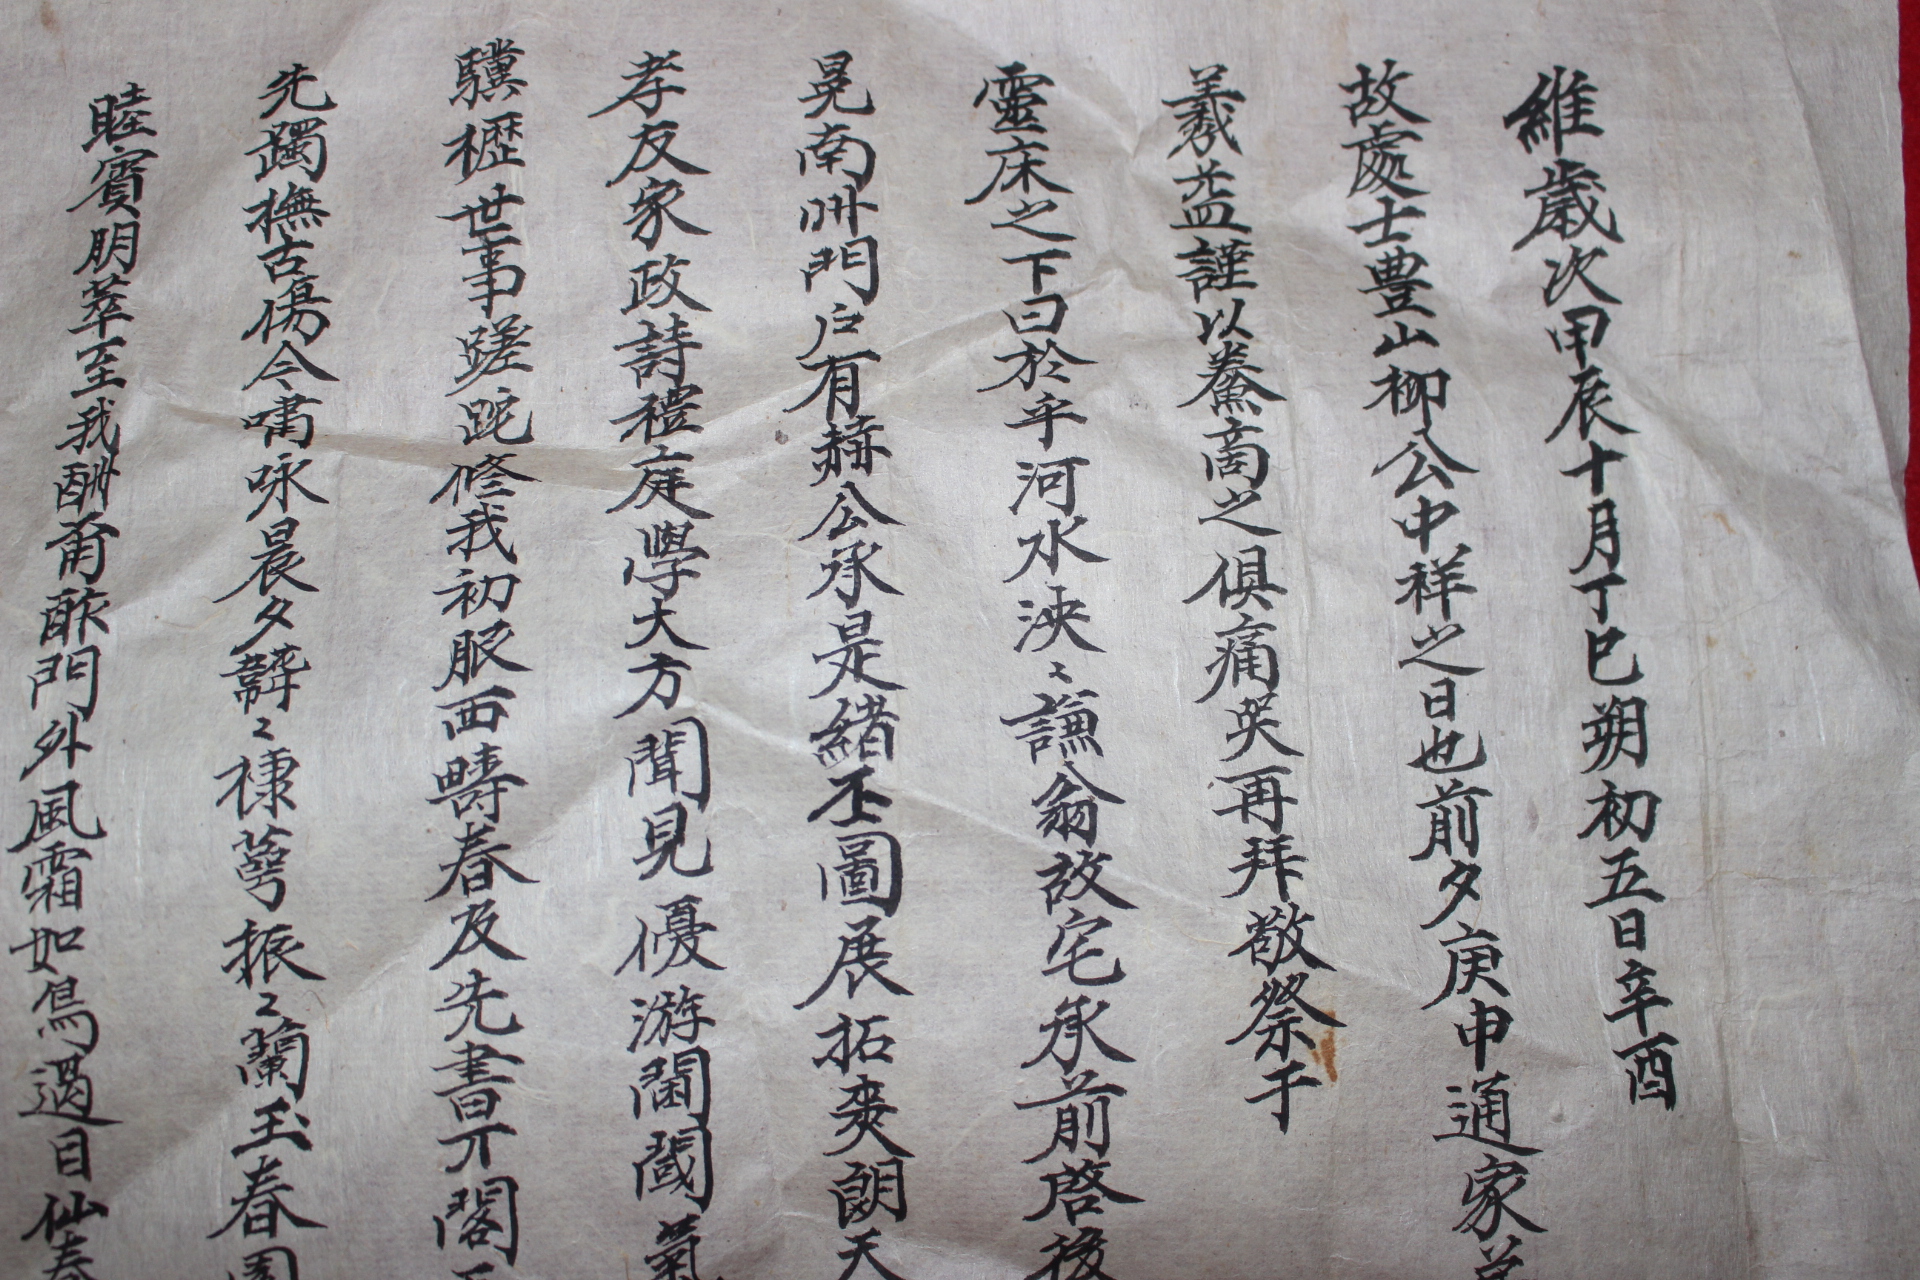 維歲次甲辰十月丁巳朔初五日辛酉
故處士豊山柳公中祥之日也前夕庚申通家
羲益謹以鱶啇之俱痛哭再拜敬祭于
靈床之下曰於乎河水泱〻謙翁故宅承前啓後
晃南州門戶有赫公承是緖丕圖展拓爽朗天
孝友家政詩禮庭學大方聞見優游閫閾氣
驥櫪世事蹉跎修我初服西疇春及先書丌閣
先躅撫古傷今嘯咏晨夕韡〻棣萼振〻蘭玉春園
睦賓朋萃至我酬甭酢門外風霜如鳥過目仙春